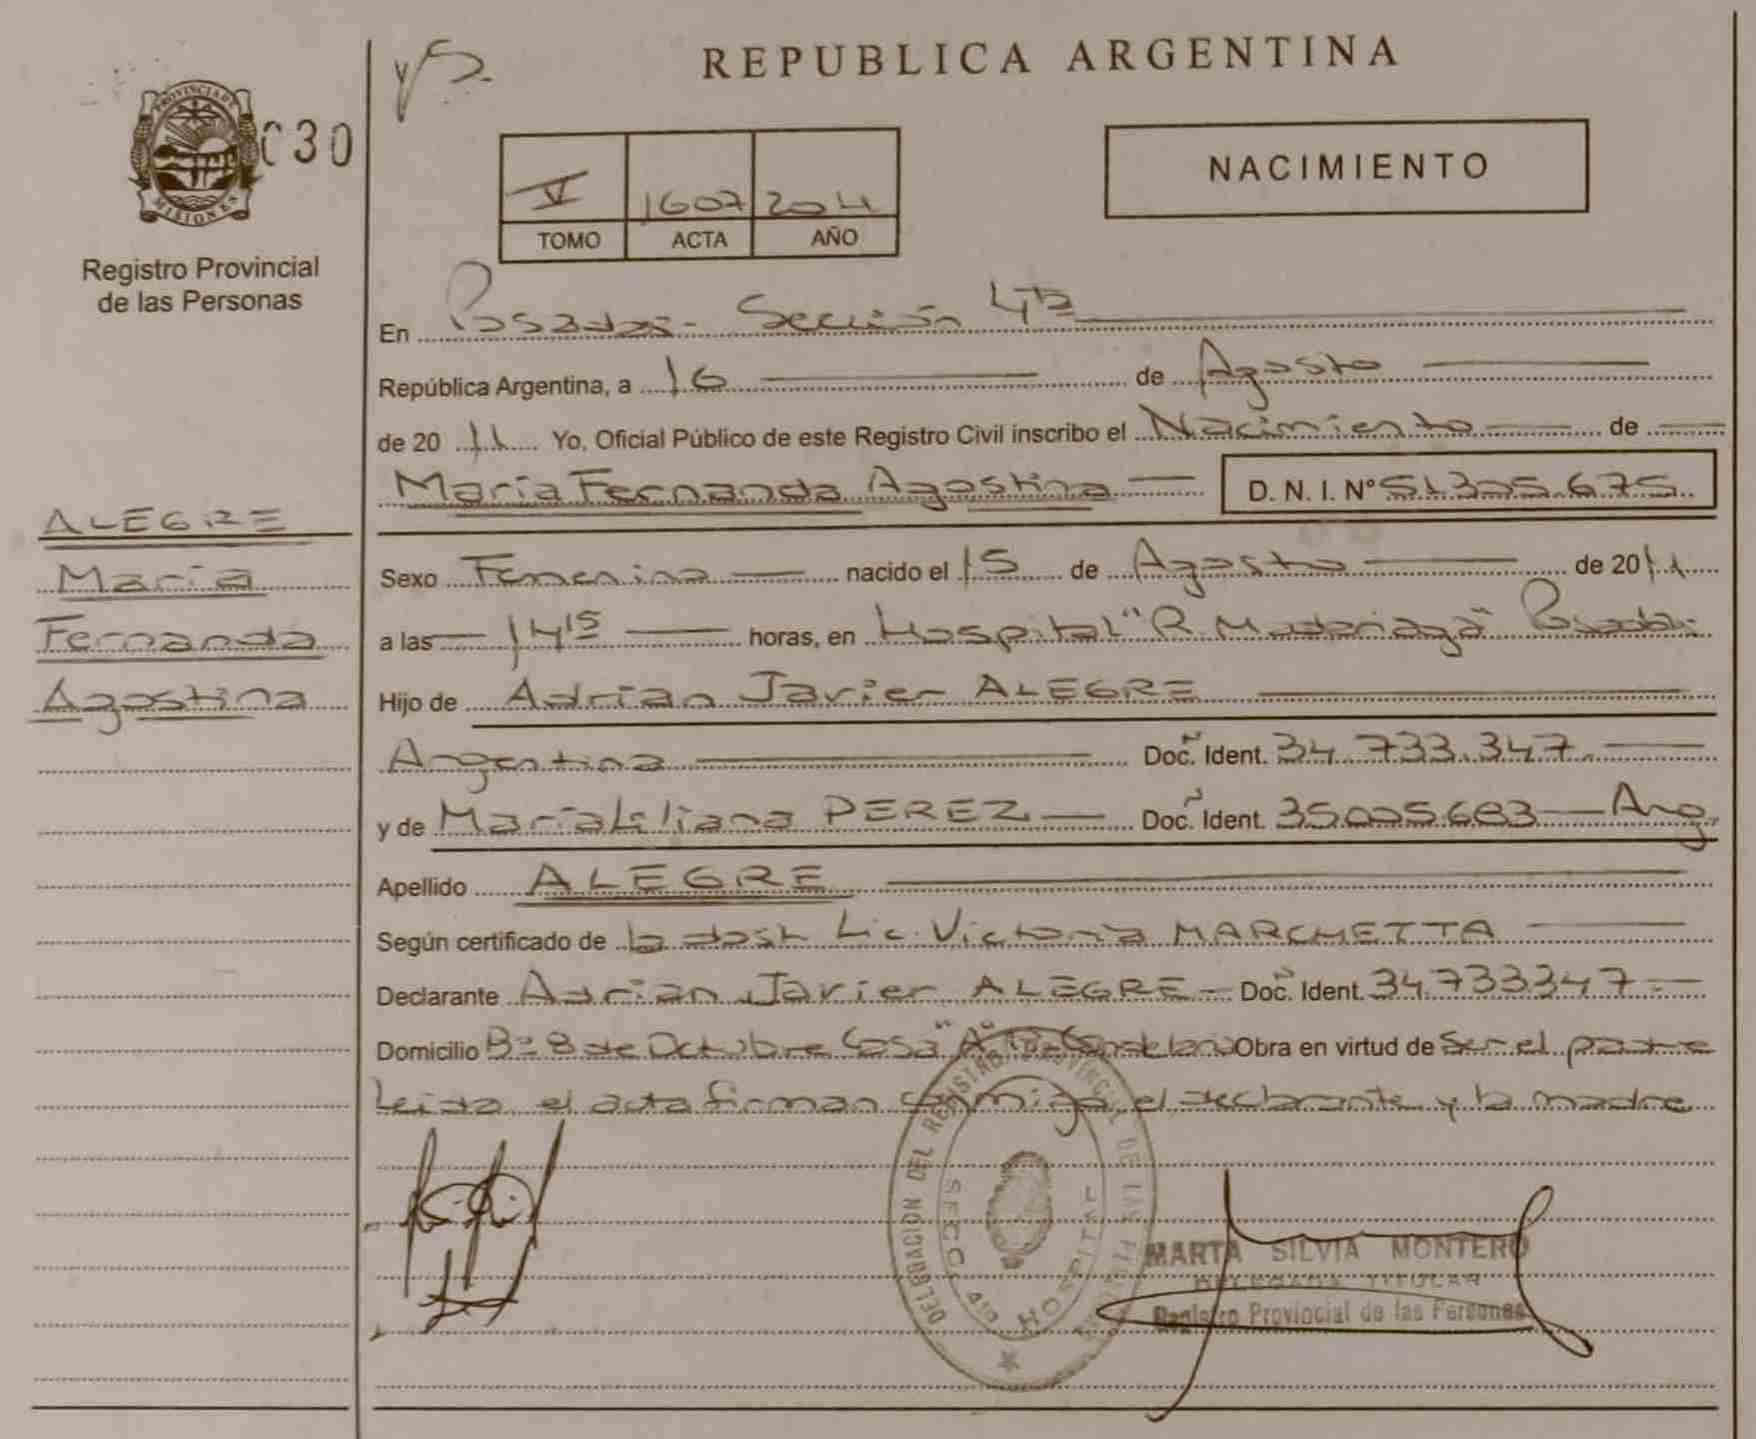 REPUBLICA ARGENTINA
PROVINCIA DE MISIONES
030
Registro Provincial
de las Personas
V 1607 2011
TOMO ACTA AÑO
NACIMIENTO
En Posadas - Sección 4ta
República Argentina, a 16 de Agosto
de 2011 Yo, Oficial Público de este Registro Civil inscribo el Nacimiento de
María Fernanda Agostina D. N. I. Nº 51.305.675
ALEGRE
María
Fernanda
Agostina
Sexo Femenino nacido el 15 de Agosto de 2011
a las 14 15 horas, en Hospital "R. Madariaga" Posadas
Hijo de Adrian Javier ALEGRE
Argentina Doc. Ident. 34.733.347.
y de María Liliana PEREZ Doc. Ident. 35.005.683 Arg.
Apellido ALEGRE
Según certificado de la Lic. Victoria MARCHETTA
Declarante Adrian Javier ALEGRE Doc. Ident. 34.733347
Domicilio Bº 8 de Octubre Casa "A" Candelaria Obra en virtud de Ser el padre
Leida el acta firman conmigo el declarante y la madre
DELEGACION DEL REGISTRO PROVINCIAL DE LAS PERSONAS
SECC. 4ta HOSPITAL
MARTA SILVIA MONTERO
DELEGADA TITULAR
Registro Provincial de las Personas